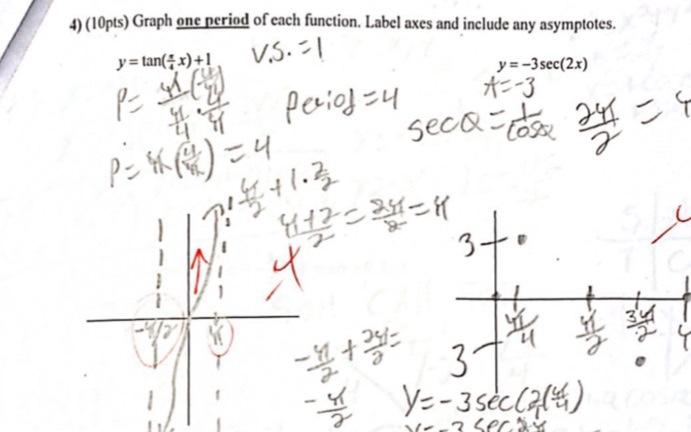 4) (10pts) Graph one period of each function. Label axes and include any asymptotes.
y = tan(π/4 x)+1
V.S. = 1
P = π/(π/4) (4/π)/(4/π)
Period = 4
P = π(4/π) = 4
π/2 + 1 · 2/2
π+2/2 = 2π/2 = π
-π/2
π
-π/2 + 2π/2 =
-π/2
y = -3sec(2x)
A = -3
secQ = 1/cosQ
2π/2 = π
3
π/4
π/2
3π/2
3
y = -3sec(2(π/4)